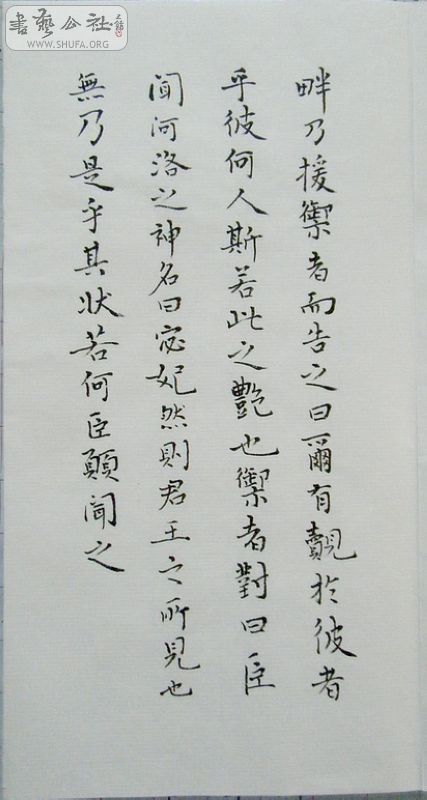 書藝公社
WWW.SHUFA.ORG
畔乃援禦者而告之曰爾有覿於彼者
乎彼何人斯若此之艷也禦者對曰臣
聞河洛之神名曰宓妃然則君王之所見也
無乃是乎其狀若何臣願聞之